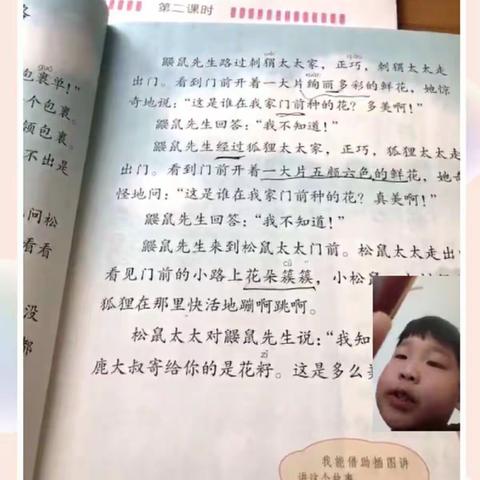 第二课时
鼹鼠先生路过刺猬太太家，正巧，刺猬太太走
出门。看到门前开着一大片绚丽多彩的鲜花，她惊
奇地说：“这是谁在我家门前种的花？多美啊！”
鼹鼠先生回答：“我不知道！”
鼹鼠先生经过狐狸太太家，正巧，狐狸太太走
出门。看到门前开着一大片五颜六色的鲜花，她
怪地问：“这是谁在我家门前种的花？真美啊！”
鼹鼠先生回答：“我不知道！”
鼹鼠先生来到松鼠太太门前。松鼠太太走出
cù
看见门前的小路上花朵簇簇，小松鼠
狐狸在那里快活地蹦啊跳啊。
松鼠太太对鼹鼠先生说：“我知
zǐ
鹿大叔寄给你的是花籽。这是多么
我能借助插图讲
讲这个故事
guǒ
包裹单！”
个包裹。
领包裹。
不出是
问松
看看
没
都